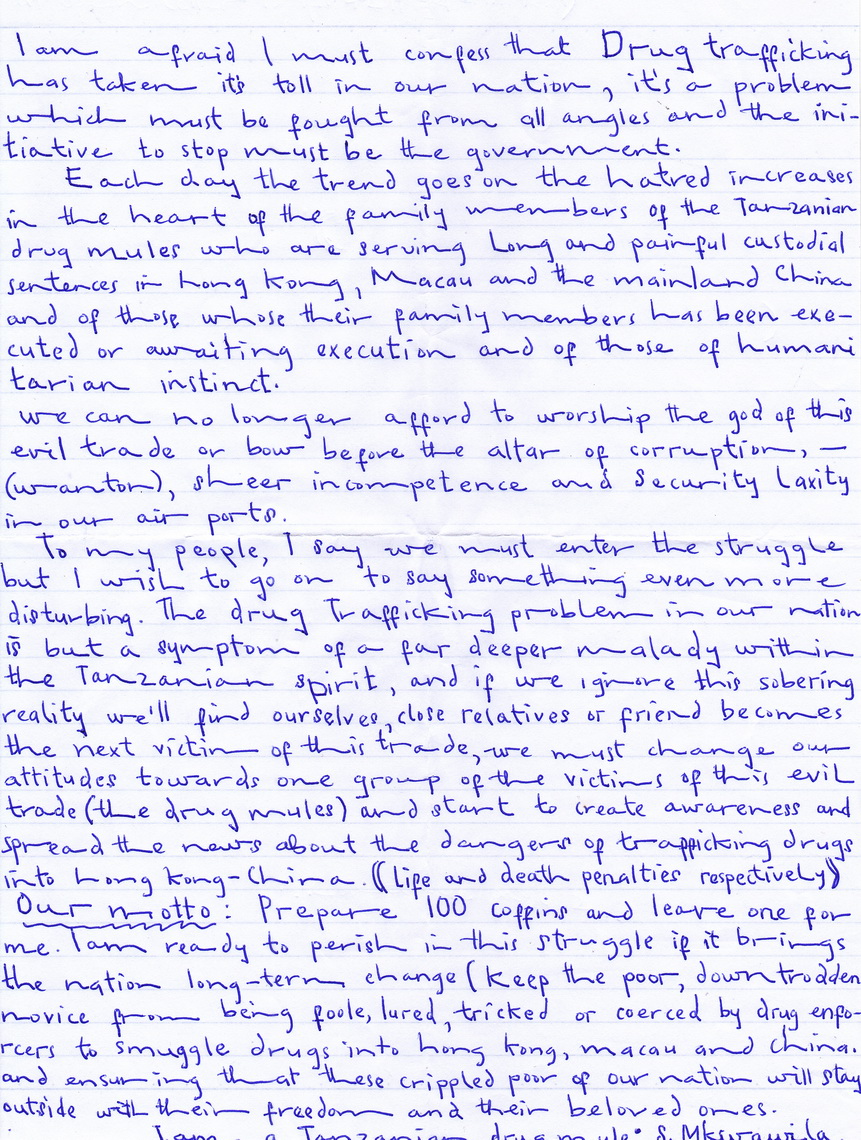 I am afraid I must confess that Drug trafficking
has taken it's toll in our nation, it's a problem
which must be fought from all angles and the ini-
tiative to stop must be the government.
Each day the trend goes on the hatred increases
in the heart of the family members of the Tanzanian
drug mules who are serving Long and painful custodial
sentences in hong kong, Macau and the mainland China
and of those whose their family members has been exe-
cuted or awaiting execution and of those of humani
tarian instinct.
we can no longer afford to worship the god of this
evil trade or bow before the altar of corruption, —
(wanton), sheer incompetence and Security Laxity
in our air ports.
To my people, I say we must enter the struggle
but I wish to go on to say something even more
disturbing. The drug Trafficking problem in our nation
is but a symptom of a far deeper malady within
the Tanzanian spirit, and if we ignore this sobering
reality we'll find ourselves, close relatives or friend becomes
the next victim of this trade, we must change our
attitudes towards one group of the victims of this evil
trade (the drug mules) and start to create awareness and
spread the news about the dangers of trafficking drugs
into hong kong-China. ((Life and death penalties respectively))
Our motto: Prepare 100 coffins and leave one for
me. I am ready to perish in this struggle if it brings
the nation long-term change (keep the poor, downtrodden
novice from being foole, lured, tricked or coerced by drug enfo-
rcers to smuggle drugs into hong kong, macau and china.
and ensuring that these crippled poor of our nation will stay
outside with their freedom and their beloved ones.
I am a Tanzanian drug mule: S.